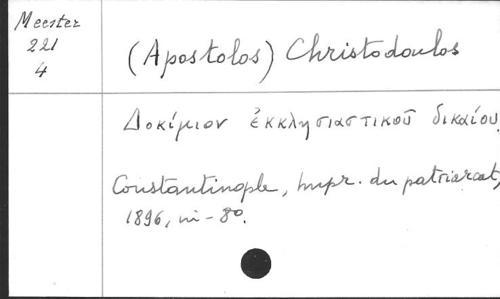 Meester
221
4
(Apostolos) Christodoulos
Δοκίμιον ἐκκλησιαστικοῦ δικαίου.
Constantinople, Impr. du patriarcat,
1896, in-8º.